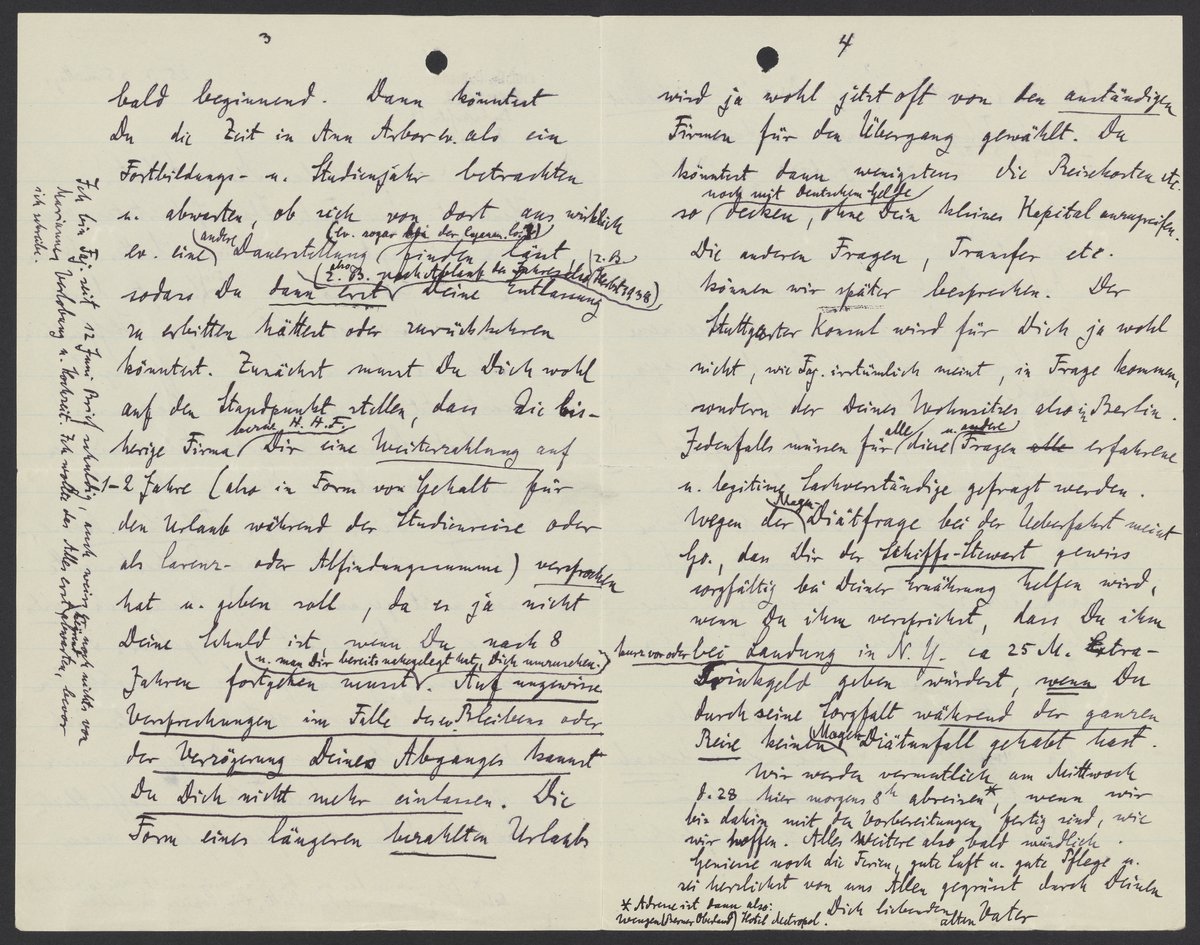 3
bald beginnend. Dann könntest
Du die Zeit in Ann Arbor ev. als ein
Fortbildungs- u. Studienjahr betrachten
u. abwarten, ob sich von dort aus wirklich
(ev. sogar bei der
ev. eine andere Dauerstellung finden lässt
(also z. B. nach Ablauf des Jahres also Herbst 1938) z. B.
sodass Du dann erst Deine Entlassung
zu erbitten hättest oder zurückkehren
könntest. Zunächst musst Du Dich wohl
auf den Standpunkt stellen, dass Die bis-
herige Firma bezw. H. H. F. Dir eine Weiterzahlung auf
1-2 Jahre (also in Form von Gehalt für
den Urlaub während der Studienreise oder
als Carenz- oder Abfindungssumme) versprochen
hat u. geben soll, da es ja nicht
Deine Schuld ist, wenn Du nach 8
(u. man Dir bereits nahegelegt hat, Dich umzusehen.)
Jahren fortgehen musst. Auf ungewisse
Versprechungen im Falle des Bleibens oder
der Verzögerung Deines Abganges kannst
Du Dich nicht mehr einlassen. Die
Form eines längeren bezahlten Urlaubs
Ich bin Faj. seit 12 Juni Brief schuldig, auch weiss Hedwig noch nichts von
Mariannes Verlobung u. Hochzeit. Ich wollte das Alles erst abwarten, bevor
ich schreibe.
4
wird ja wohl jetzt oft von den anständigen
Firmen für den Übergang gewählt. Du
könntest dann wenigstens die Reisekosten etc.
noch mit deutschem Gelde
so decken, ohne Dein kleines Kapital anzugreifen.
Die anderen Fragen, Transfer etc.
können wir später besprechen. Der
Stuttgarter Konsul wird für Dich ja wohl
nicht, wie Faj. irrtümlich meint, in Frage kommen,
sondern der Deines Wohnsitzes also in Berlin.
Jedenfalls müssen für alle diese u. andere Fragen alle erfahrene
u. legitime Sachverständige gefragt werden.
Wegen der Magen-Diätfrage bei der Ueberfahrt meint
Go., dass Dir der Schiffs-Stewart gewiss
sorgfältig bei Deiner Ernährung helfen wird,
wenn Du ihm versprichst, dass Du ihm
kurz vor oder bei Landung in N. Y. ca 25 M. Extra-
Trinkgeld geben würdest, wenn Du
durch seine Sorgfalt während der ganzen
Reise keinen Magen Diätunfall gehabt hast.
Wir werden vermutlich am Mittwoch
d. 28 hier morgens 8h abreisen*, wenn wir
bis dahin mit den Vorbereitungen fertig sind, wie
wir hoffen. Alles Weitere also bald mündlich.
Geniesse noch die Ferien, gute Luft u. gute Pflege u.
sei herzlichst von uns Allen gegrüsst durch Deinen
Dich liebenden alten Vater
* Adresse ist dann also:
Wengen (Berner Oberland) Hotel Metropol.